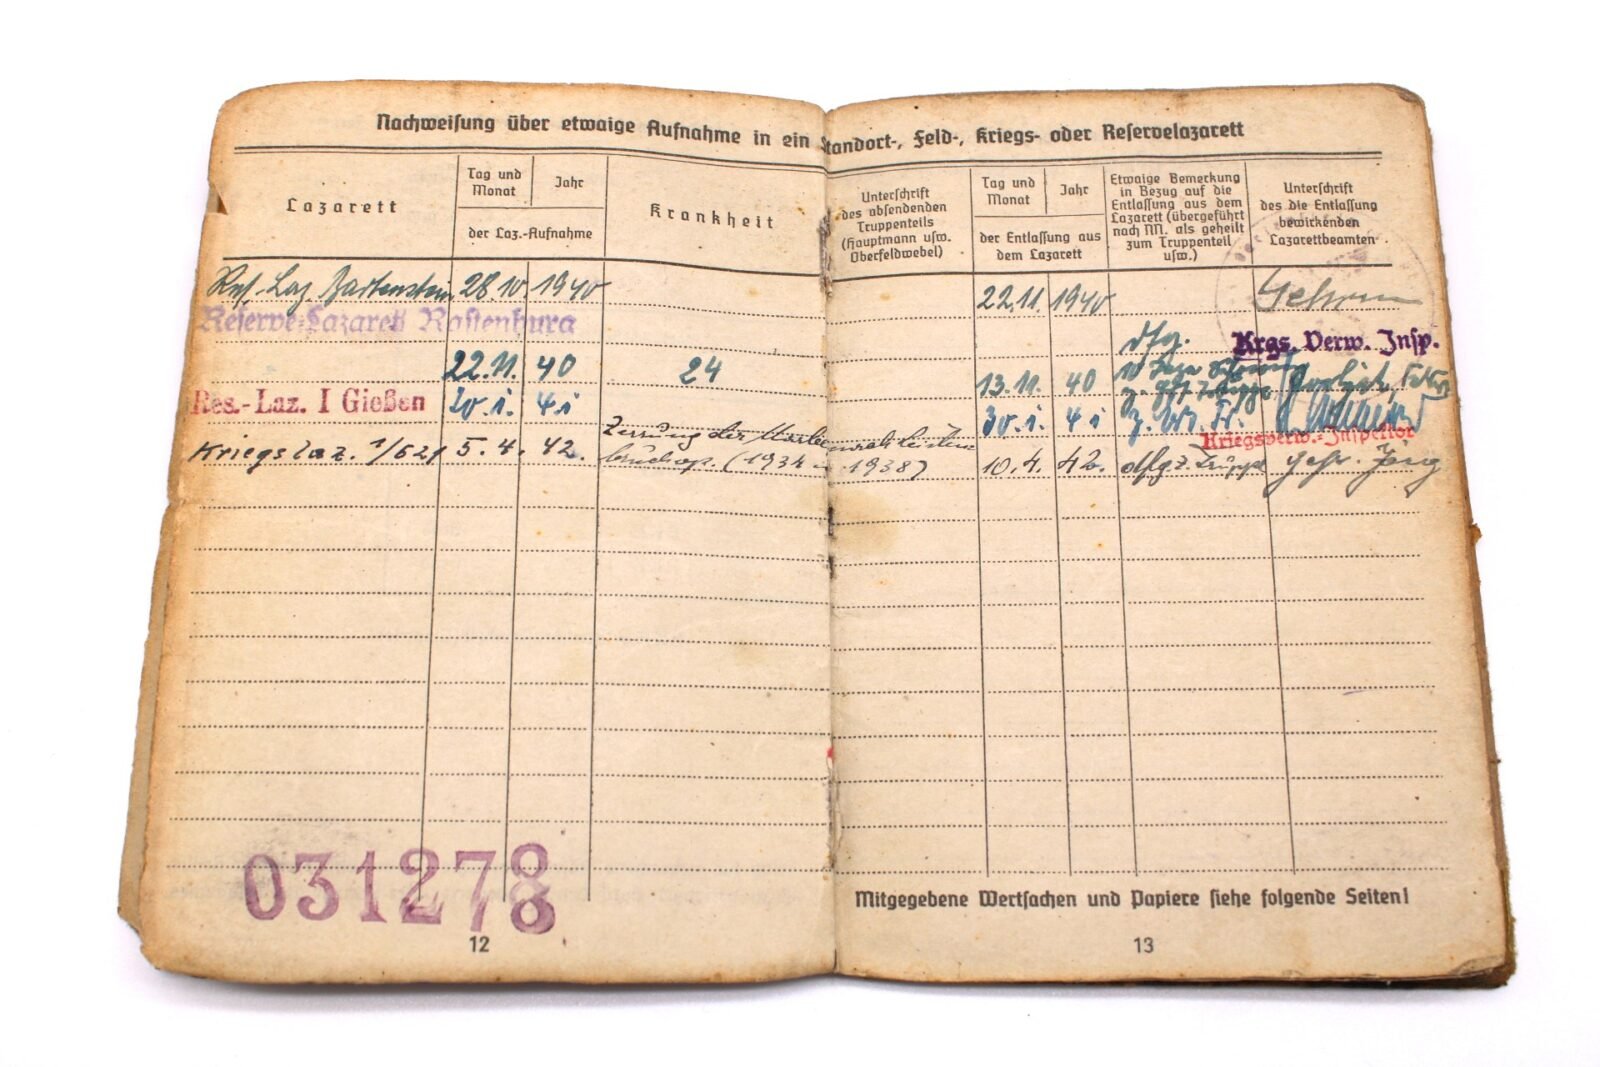 Nachweisung über etwaige Aufnahme in ein Standort-, Feld-, Kriegs- oder Reservelazarett
Lazarett
Tag und Monat
Jahr
der Laz.-Aufnahme
Krankheit
Unterschrift
des absendenden
Truppenteils
(Hauptmann usw.
Oberfeldwebel)
Tag und Monat
Jahr
der Entlassung aus
dem Lazarett
Etwaige Bemerkung
in Bezug auf die
Entlassung aus dem
Lazarett (übergeführt
nach NN. als geheilt
zum Truppenteil
usw.)
Unterschrift
des die Entlassung
bewirkenden
Lazarettbeamten
Res. Laz. Bartenstein 28.10. 1940 22.11. 1940
Reserve-Lazarett Rastenburg
Krgs. Verw. Insp.
22.11. 40 24 13.11. 40
Res.-Laz. I Gießen 41 41
Kriegsverw.-Inspektor
Zerrung der
Kriegslaz. 1/621 5.4. 42. (1934 u. 1938) 10.4. 42. dfg. z. Truppe
031278
Mitgegebene Wertsachen und Papiere siehe folgende Seiten!
12
13